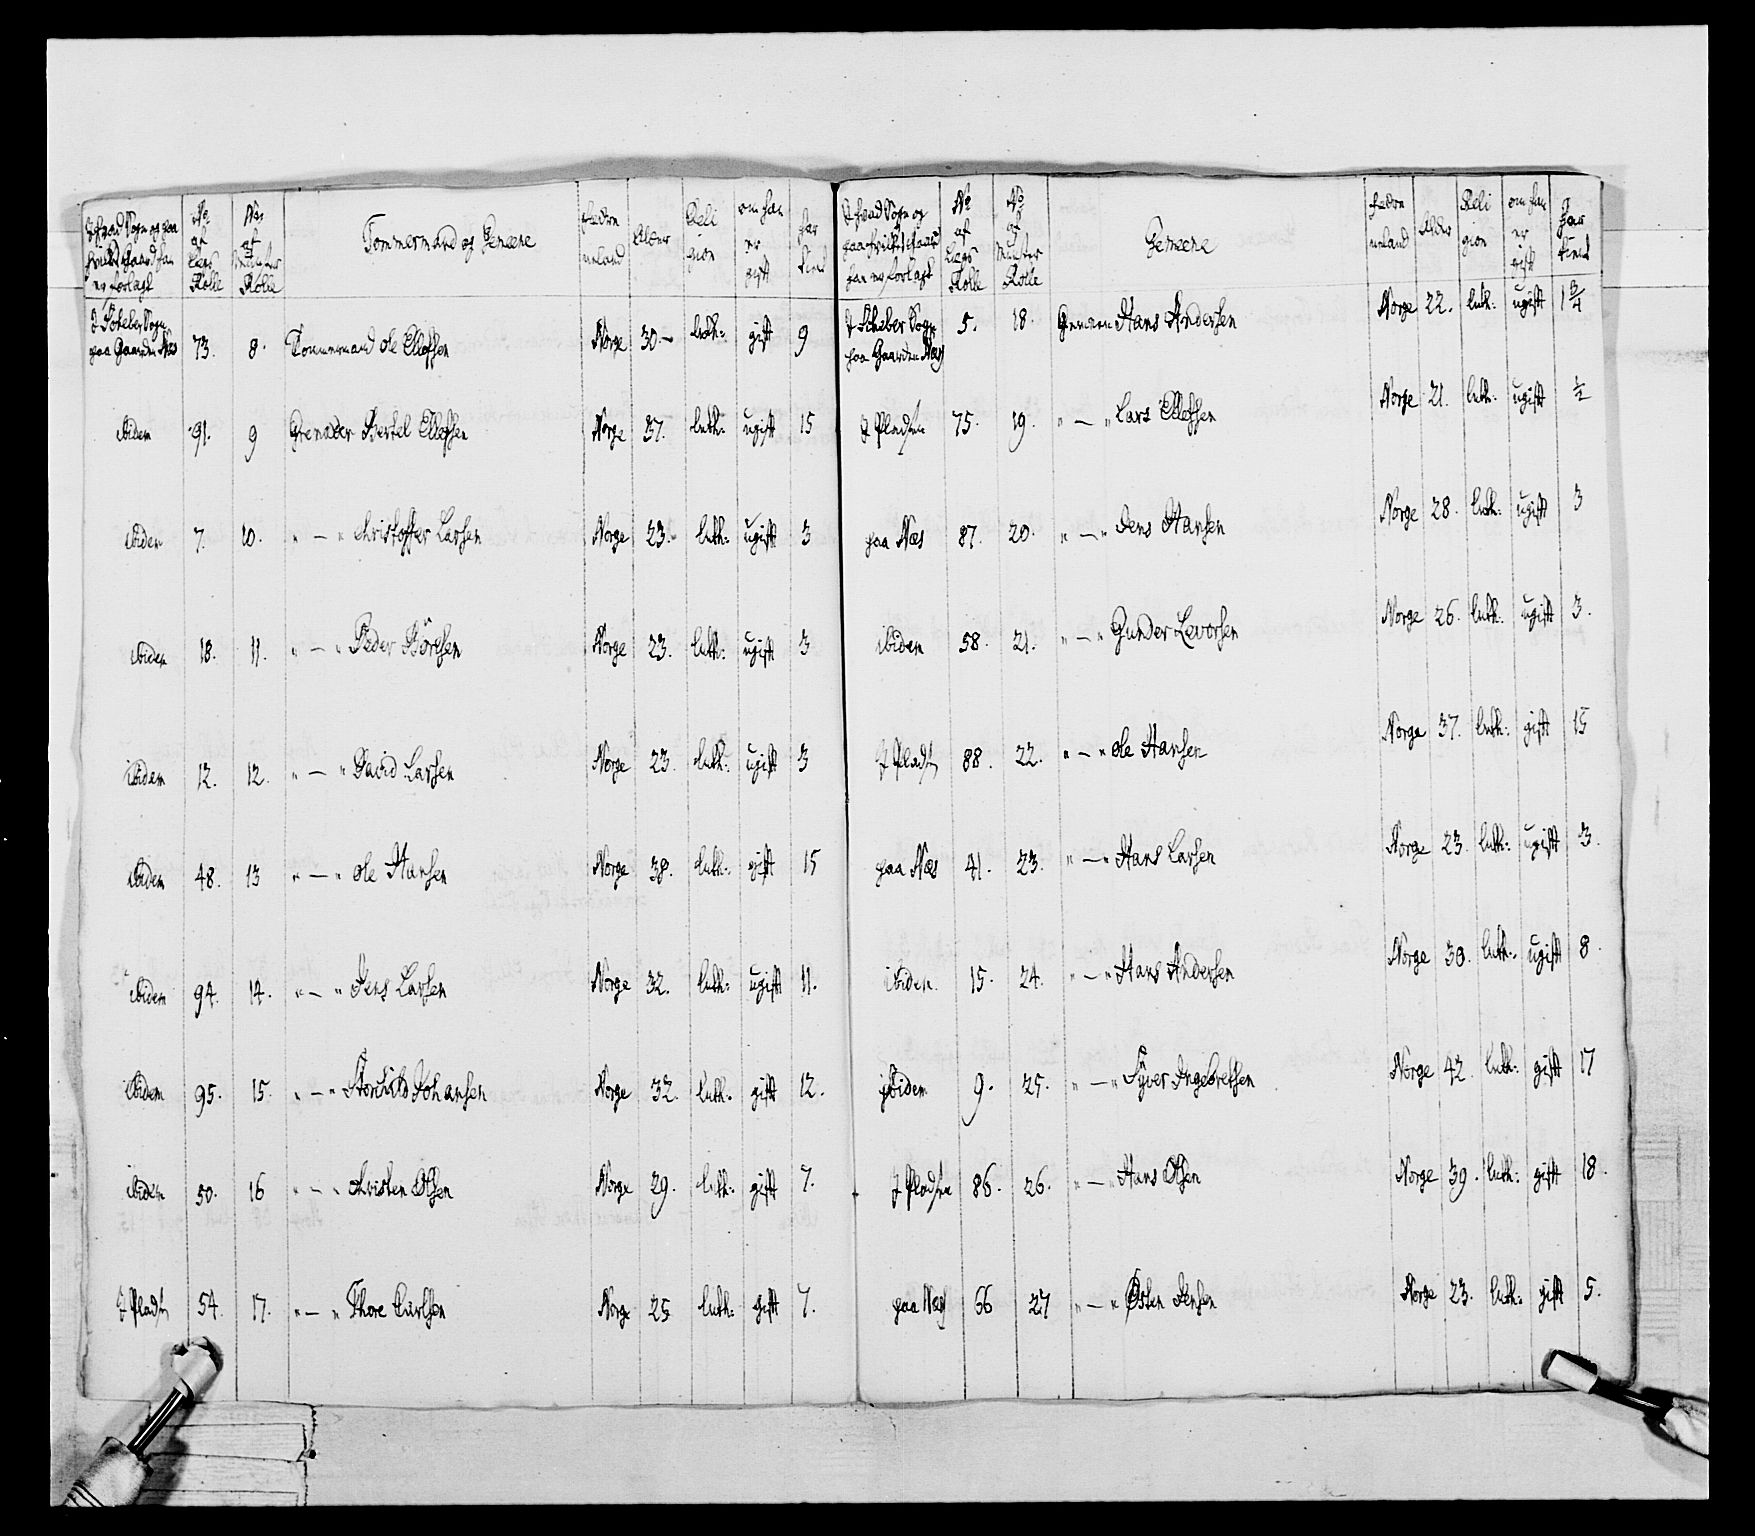 I hvad Sogn og paa hvilk: Gaard han er forlagt | No af Lægs Rolle | No af Munster Rolle | Tommermænd og Gemeene | Fædreneland | Alder | Religion | om han er gift | Har tient
I Scheber Sogn paa Gaarden Næs 73. 8. Tommermand Ole Ellefsen Norge 30.— luth: gift 9
ibidem 91. 9 Grenader Bertel Ellefsen Norge 37.— luth: ugift 15
ibidem 7. 10. " — " Christoffer Larsen Norge 23.— luth: ugift 3
ibidem 18. 11. " — " Peder Böresen Norge 23. luth: ugift 3
ibidem 12. 12. " — " David Larsen Norge 23. luth: ugift 3
ibidem 48. 13 " — " Ole Hansen Norge 38. luth: gift 15
ibidem 94. 14. " — " Jens Larsen Norge 32. luth: ugift 11.
ibidem 95. 15. " — " Johansen Norge 32. luth: gift 12.
ibidem 50. 16 " — " Christen Olsen Norge 29. luth: gift 7.
I Pladsen 54. 17. " — " Thore Norge 25 luth: gift 7.
I hvad Sogn og paa hvilk: Gaard han er forlagt | No af Lægs Rolle | No af Munster Rolle | Gemeene | Fædreneland | Alder | Religion | om han er gift | Har tient
I Scheber Sogn paa Gaarden Næs 5. 18. Gemeen Hans Andersen Norge 22. luth: ugift 1 3/4
I Pladsen 75. 19. " — " Lars Ellefsen Norge 21. luth: ugift 1/2
paa Næs 87. 20. " — " Jens Hansen Norge 28. luth: ugift 3
ibidem 58. 21. " — " Gunder Levorsen Norge 26. luth: ugift 3.
I Pladsen 88. 22. " — " Ole Hansen Norge 37. luth: gift 15
paa Næs 41. 23. " — " Hans Larsen Norge 23. luth: ugift 3.
ibidem 15. 24. " — " Hans Andersen Norge 30. luth: ugift 8.
ibidem 9. 25. " — " Syver Ingebretsen Norge 42. luth: gift 17
I Pladsen 86. 26. " — " Hans Olsen Norge 39. luth: gift 18.
paa Næs 66 27 " — " Østen Jensen Norge 23. luth: gift 5.